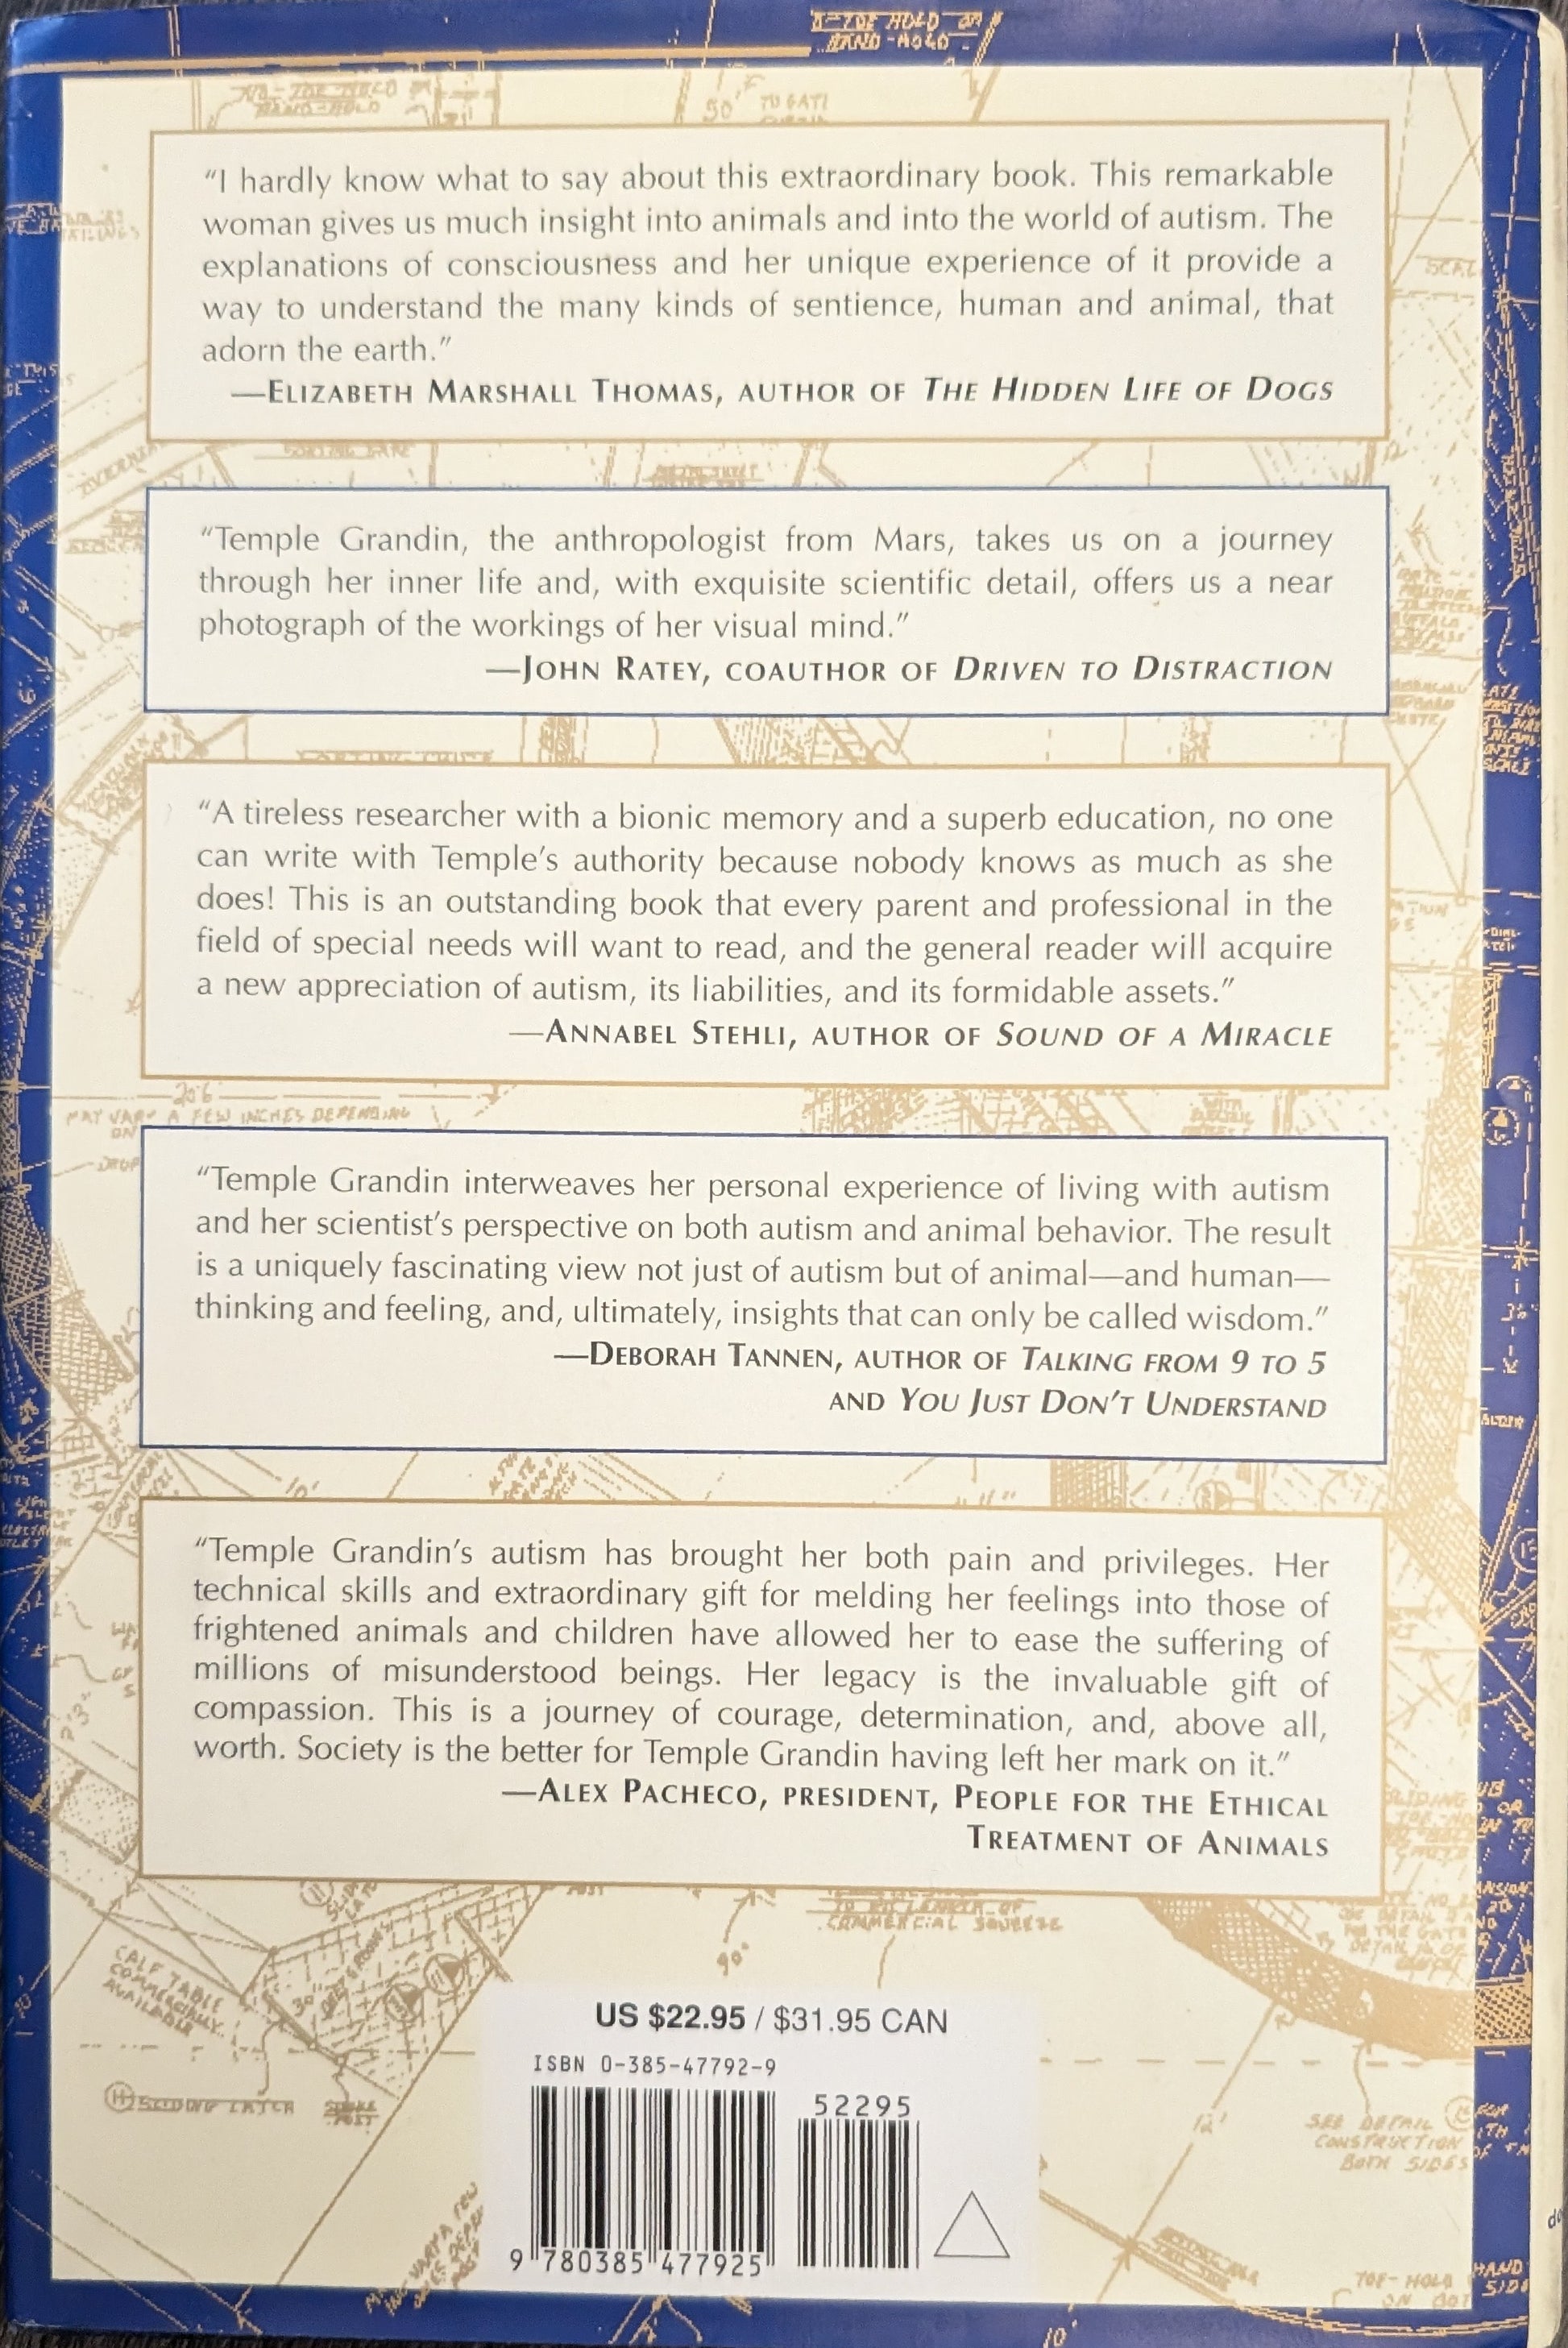 X-TOE HOLD OR
HAND-HOLD
NO-TOE HOLD
HAND-HOLD
50'
TO GATE
"I hardly know what to say about this extraordinary book. This remarkable
woman gives us much insight into animals and into the world of autism. The
explanations of consciousness and her unique experience of it provide a
way to understand the many kinds of sentience, human and animal, that
adorn the earth."
—ELIZABETH MARSHALL THOMAS, AUTHOR OF THE HIDDEN LIFE OF DOGS
"Temple Grandin, the anthropologist from Mars, takes us on a journey
through her inner life and, with exquisite scientific detail, offers us a near
photograph of the workings of her visual mind."
—JOHN RATEY, COAUTHOR OF DRIVEN TO DISTRACTION
"A tireless researcher with a bionic memory and a superb education, no one
can write with Temple's authority because nobody knows as much as she
does! This is an outstanding book that every parent and professional in the
field of special needs will want to read, and the general reader will acquire
a new appreciation of autism, its liabilities, and its formidable assets."
—ANNABEL STEHLI, AUTHOR OF SOUND OF A MIRACLE
20'6
MAY VARY A FEW INCHES DEPENDING
ON
"Temple Grandin interweaves her personal experience of living with autism
and her scientist's perspective on both autism and animal behavior. The result
is a uniquely fascinating view not just of autism but of animal—and human—
thinking and feeling, and, ultimately, insights that can only be called wisdom."
—DEBORAH TANNEN, AUTHOR OF TALKING FROM 9 TO 5
AND YOU JUST DON'T UNDERSTAND
10'
"Temple Grandin's autism has brought her both pain and privileges. Her
technical skills and extraordinary gift for melding her feelings into those of
frightened animals and children have allowed her to ease the suffering of
millions of misunderstood beings. Her legacy is the invaluable gift of
compassion. This is a journey of courage, determination, and, above all,
worth. Society is the better for Temple Grandin having left her mark on it."
—ALEX PACHECO, PRESIDENT, PEOPLE FOR THE ETHICAL
TREATMENT OF ANIMALS
COMMERCIAL SQUEEZE
90°
CALF TABLE
COMMERCIALLY
AVAILABLE
30"
US $22.95 / $31.95 CAN
ISBN 0-385-47792-9
52295
9 780385 477925
H SLIDING LATCH
12'
SEE DETAIL
CONSTRUCTION
BOTH SIDES
TOE-HOLD
HAND
10'